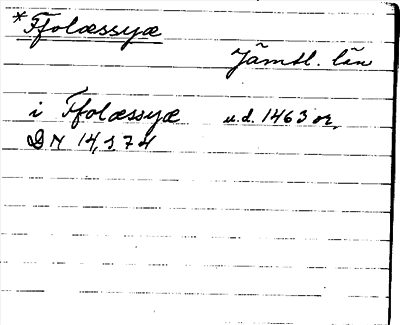 *Ffolæssyæ
Jämtl. län
i Ffolæssyæ u.d. 1463 or.
DN 14, 74